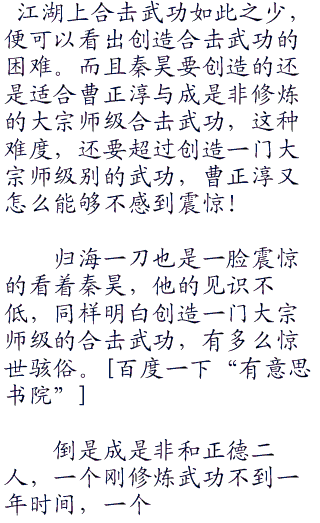 江湖上合击武功如此之少，
便可以看出创造合击武功的
困难。而且秦昊要创造的还
是适合曹正淳与成是非修炼
的大宗师级合击武功，这种
难度，还要超过创造一门大
宗师级别的武功，曹正淳又
怎么能够不感到震惊！
归海一刀也是一脸震惊
的看着秦昊，他的见识不
低，同样明白创造一门大宗
师级的合击武功，有多么惊
世骇俗。[百度一下“有意思
书院”]
倒是成是非和正德二
人，一个刚修炼武功不到一
年时间，一个